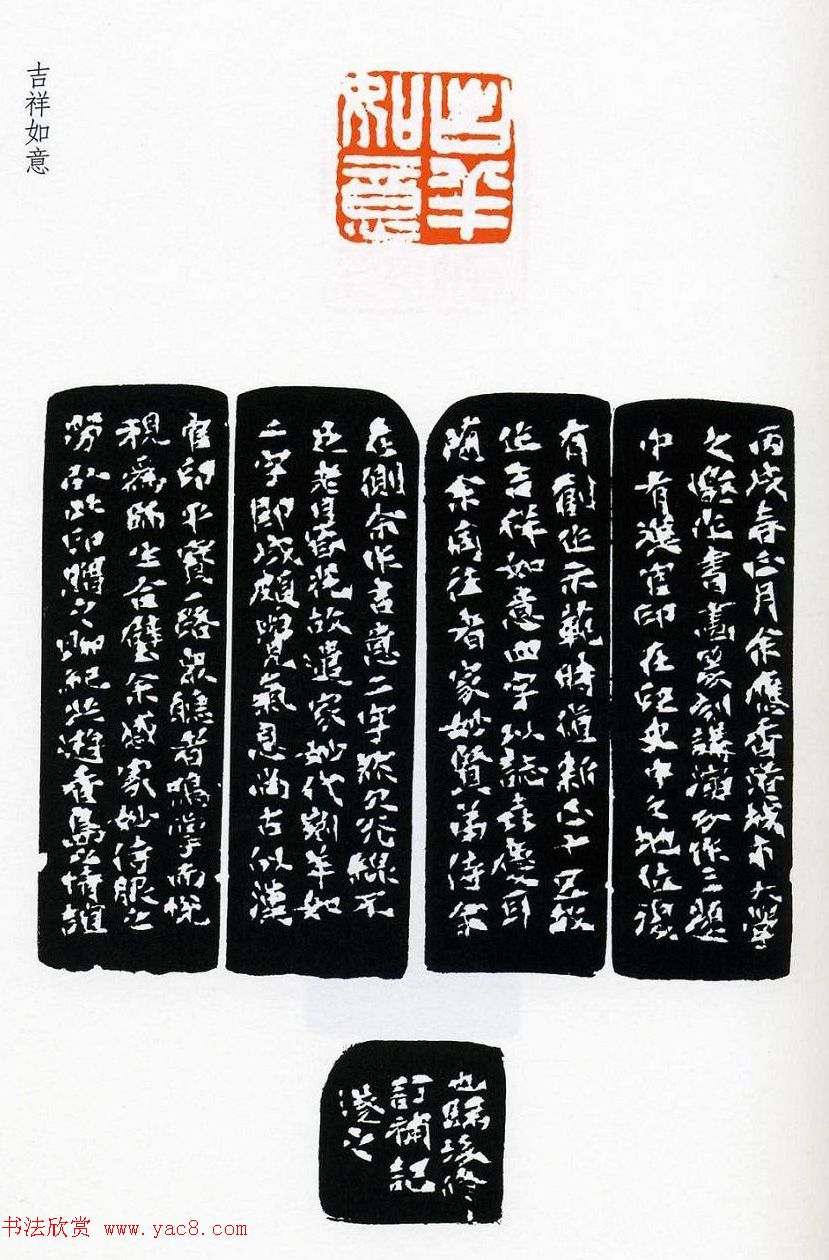 吉祥如意
吉羊
如意
丙戌春正月余應香港城市大學
之邀作書畫篆刻講演分作三題
中有漢官印在印史中之地位復
有創作示範時值新正十五故
作吉祥如意四字以誌喜慶耳
隨余同往者家妙賢弟侍余
在側余作吉意二字然欠光線不
足老目昏恍故遣家妙代刻羊如
二字即成頗覺氣息尚古似漢
官印平實一路眾聽者鳴掌而悅
視為師生合璧余感家妙侍服之
勞故此印贈之聊紀此遊香島之情誼
也歸後修
訂補記
澄之
书法欣赏 www.yac8.com